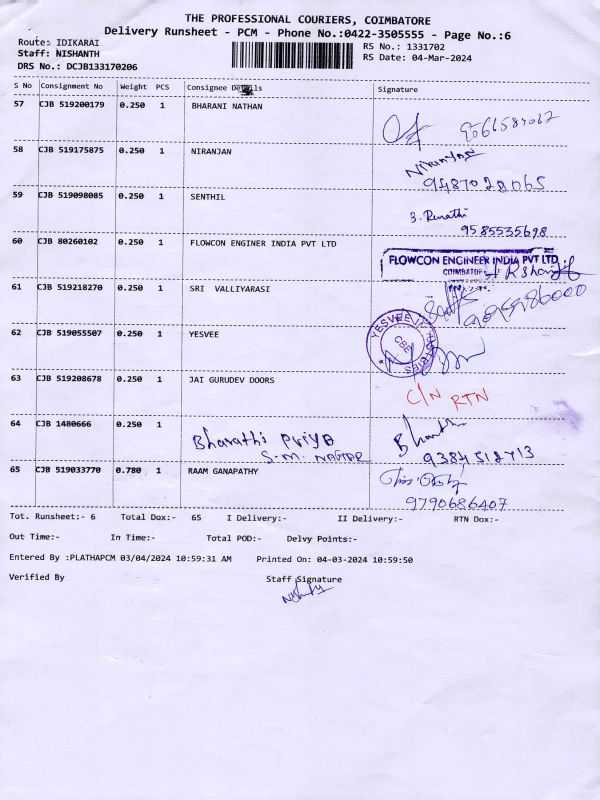 THE PROFESSIONAL COURIERS, COIMBATORE
Delivery Runsheet - PCM - Phone No.:0422-3505555 - Page No.:6
Route: IDIKARAI
RS No.: 1331702
Staff: NISHANTH
RS Date: 04-Mar-2024
DRS No.: DCJB133170206
S No Consignment No Weight PCS Consignee Details Signature
57 CJB 519200179 0.250 1 BHARANI NATHAN
58 CJB 519175875 0.250 1 NIRANJAN NIRANJAN
9487028065
59 CJB 519098085 0.250 1 SENTHIL
9585535698
60 CJB 80260102 0.250 1 FLOWCON ENGINER INDIA PVT LTD
FLOWCON ENGINEER INDIA PVT LTD
COIMBATORE
61 CJB 519218270 0.250 1 SRI VALLIYARASI
62 CJB 519055507 0.250 1 YESVEE
YESVEE INDUSTRIES
CBE
63 CJB 519208678 0.250 1 JAI GURUDEV DOORS
C/N RTN
64 CJB 1480666 0.250 1
Bharathi Priya
S.M. NAGAR
9384512713
65 CJB 519033770 0.780 1 RAAM GANAPATHY
9790686407
Tot. Runsheet:- 6 Total Dox:- 65 I Delivery:- II Delivery:- RTN Dox:-
Out Time:- In Time:- Total POD:- Delvy Points:-
Entered By :PLATHAPCM 03/04/2024 10:59:31 AM Printed On: 04-03-2024 10:59:50
Verified By Staff Signature